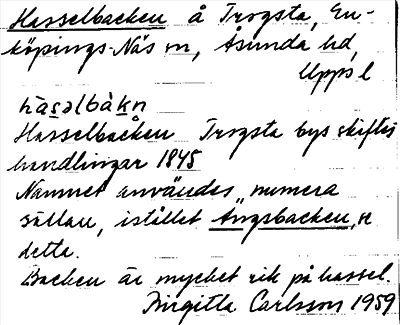 Hasselbacken å Trogsta, En-
köpings-Näs sn, Åsunda hd,
Uppsl
hàsəlbàkn
Hasselbacken Trogsta bys skiftes
handlingar 1845
Namnet användes numera
sällan, istället Ängsbacken,
detta.
Backen är mycket rik på hassel.
Birgitta Carlsson 1959